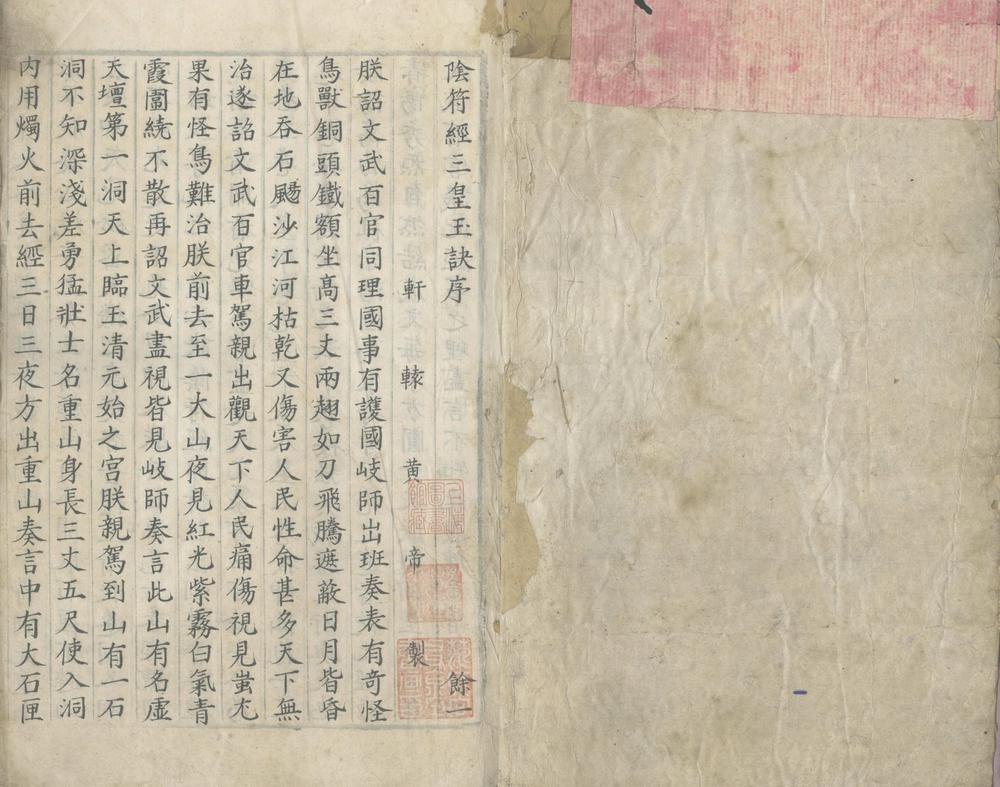 陰符經三皇玉訣序 餘一
軒轅黃帝製
朕詔文武百官同理國事有護國岐師出班奏表有奇怪
鳥獸銅頭鐵額坐高三丈兩翅如刀飛騰遮蔽日月皆昏
在地吞石颺沙江河枯乾又傷害人民性命甚多天下無
治遂詔文武百官車駕親出觀天下人民痛傷視見蚩尤
果有怪鳥難治朕前去至一大山夜見紅光紫霧白氣青
霞圍繞不散再詔文武盡視皆見岐師奏言此山有名虛
天壇第一洞天上臨玉清元始之宮朕親駕到山有一石
洞不知深淺差勇猛壯士名重山身長三丈五尺使入洞
內用燭火前去經三日三夜方出重山奏言中有大石匣